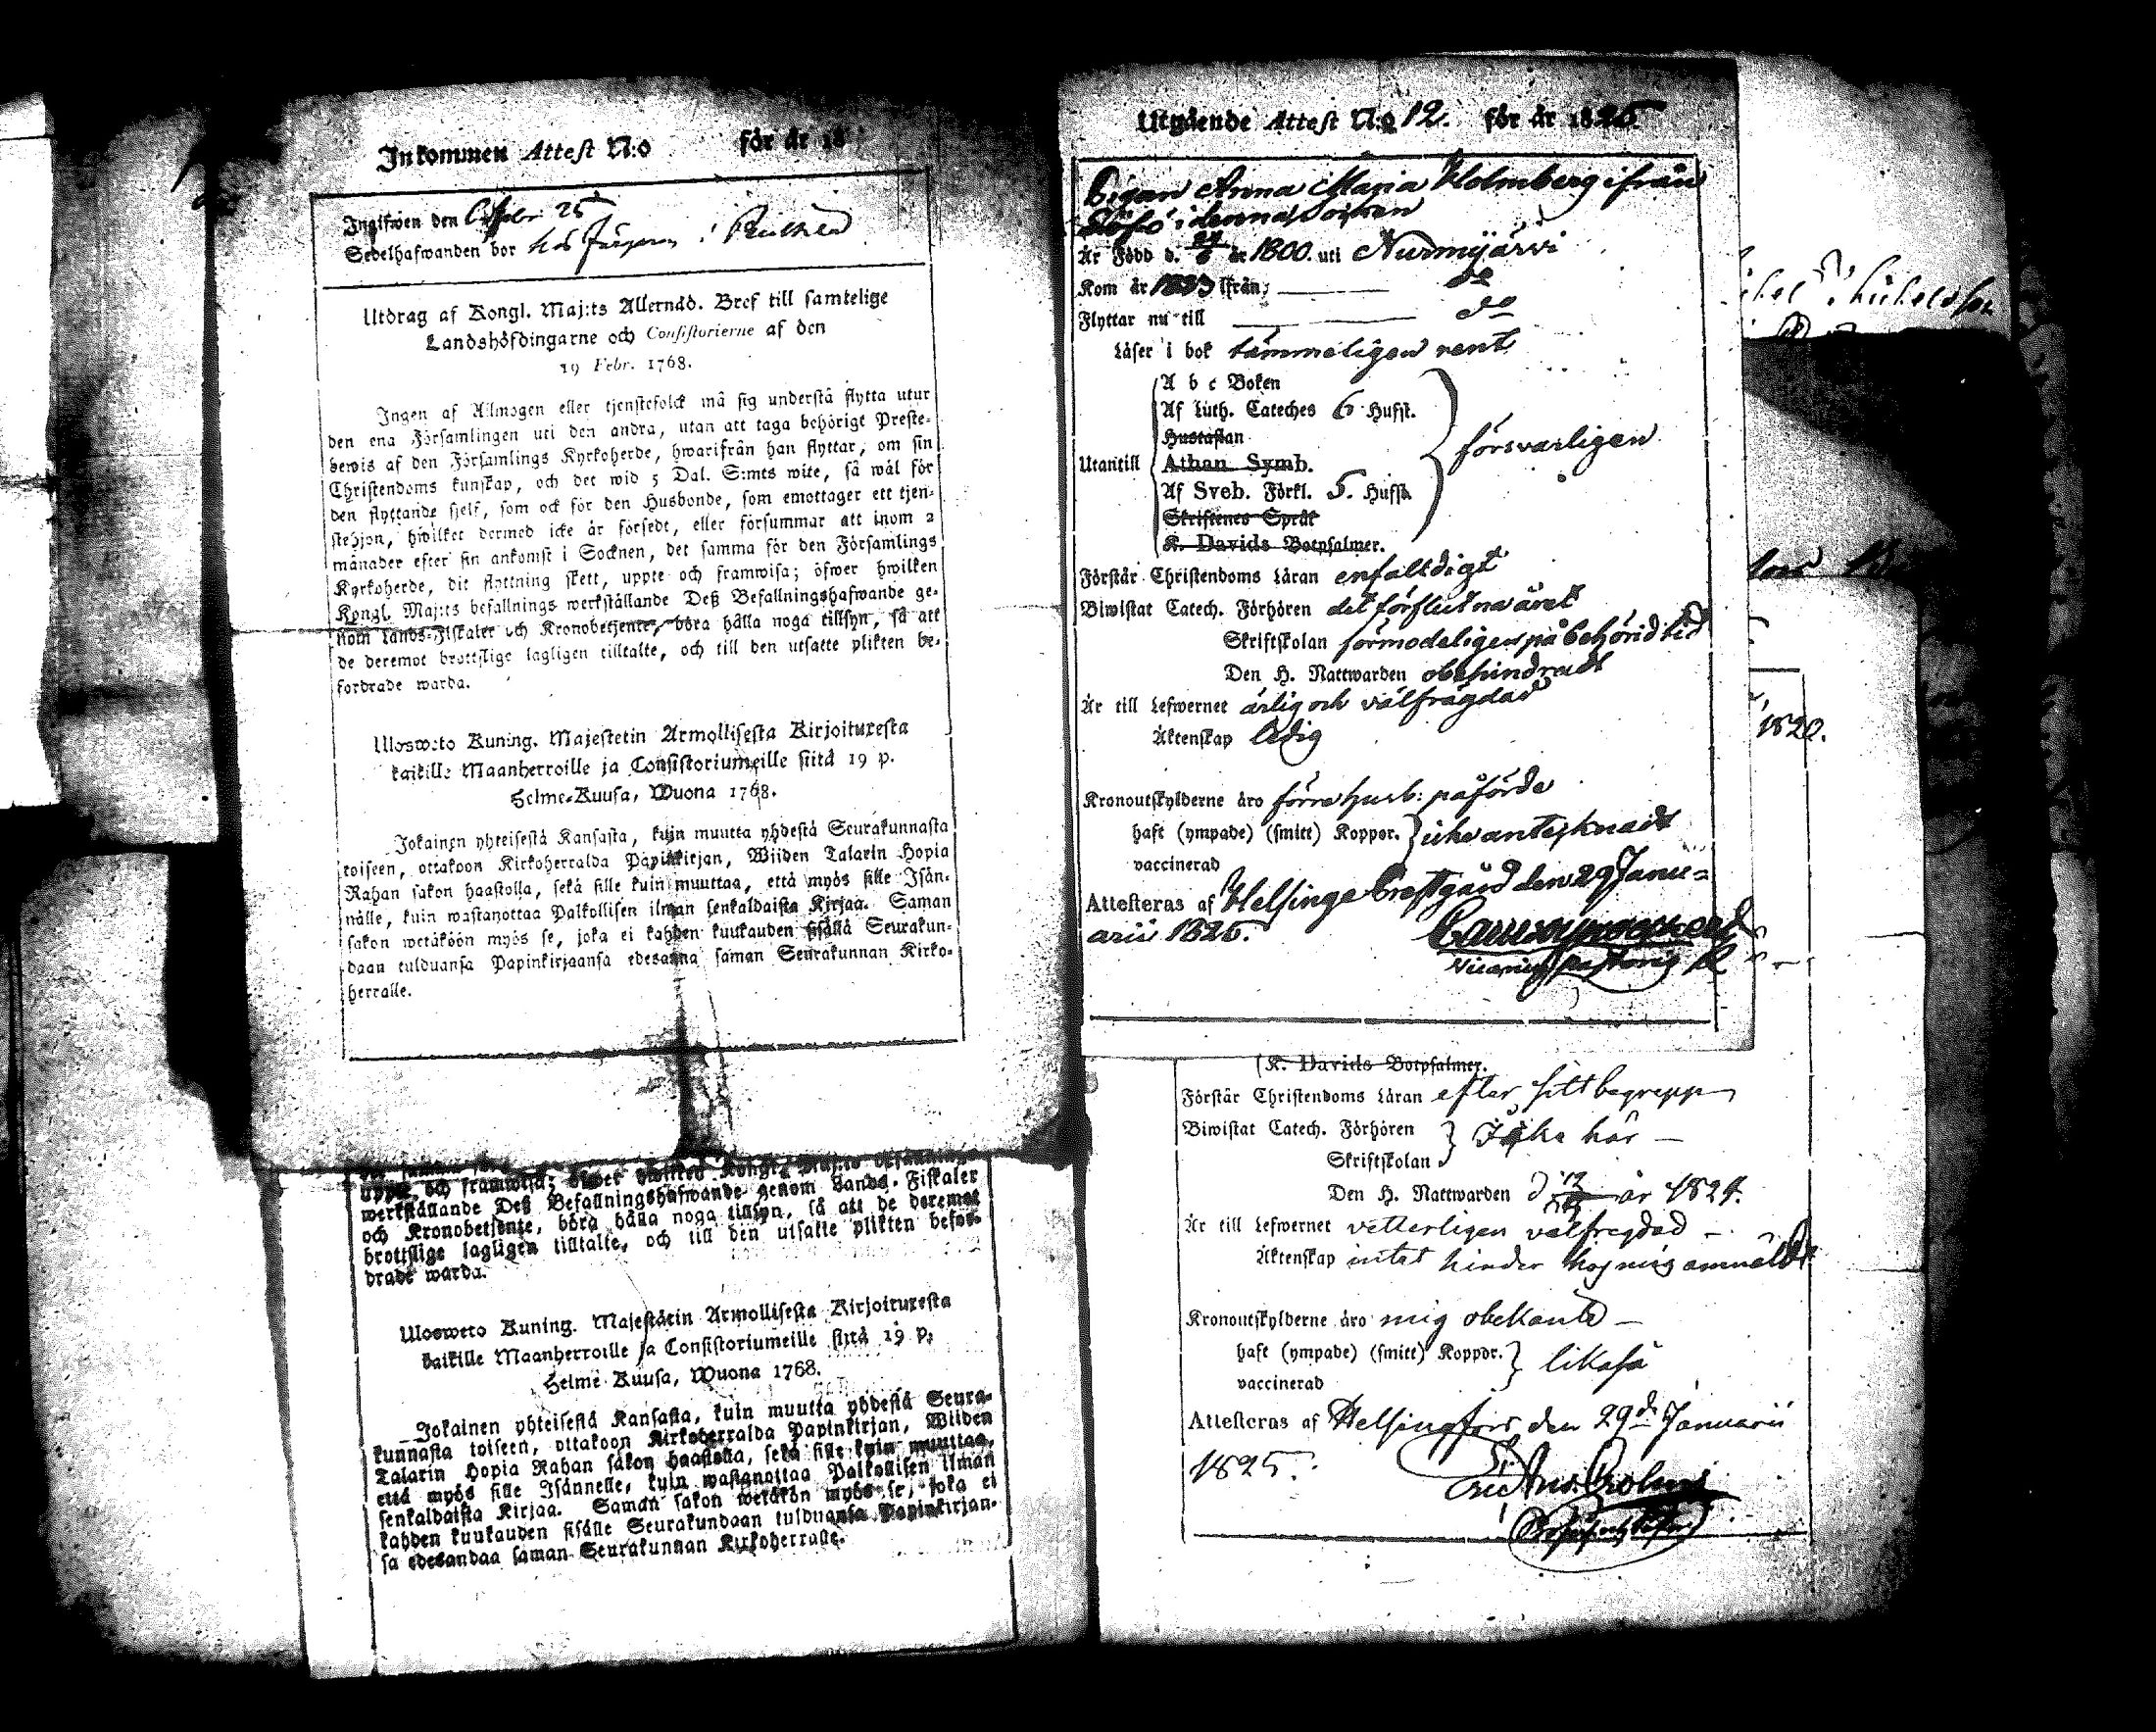 Inkommen Attest N:o för år 18
Ingifwen den 25
Sedelhafwanden bor hos i
Utdrag af Kongl. Maj:ts Allernåd. Bref till samtelige
Landshöfdingarne och Consistorierne af den
19 Febr. 1768.
Ingen af Allmogen eller tjenstefolck må sig understå flytta utur
den ena Församlingen uti den andra, utan att taga behörigt Preste-
bewis af den Församlings Kyrkoherde, hwarifrån han flyttar, om sin
Christendoms kunskap, och det wid 5 Dal. S:mts wite, så wäl för
den flyttande sjelf, som ock för den Husbonde, som emottager ett tjen-
stehjon, hwilket dermed icke är försedt, eller försummar att inom 2
månader efter sin ankomst i Socknen, det samma för den Församlings
Kyrkoherde, dit flyttning skett, uppte och framwisa; öfwer hwilken
Kongl. Maj:ts befallnings werkställande Deß Befallningshafwande ge-
nom Lands-Fiskaler och Kronobetjente, böra hålla noga tillsyn, så att
de deremot brottslige lagligen tilltalte, och till den utsatte plikten be-
fordrade warda.
Ulosweto Kuning. Majestetin Armollisesta Kirjoituxesta
kaikille Maanherroille ja Consistoriumeille siitä 19 p.
Helme-Kuusa, Wuona 1768.
Jokainen yhteisestä Kansasta, kuin muutta yhdestä Seurakunnasta
toiseen, ottakoon Kirkoherralda Papinkirjan, Wiiden Talarin Hopia
Rahan sakon haastolla, sekä sille kuin muuttaa, että myös sille Isän-
nälle, kuin wastanottaa Palkollisen ilman senkaldaista Kirjaa. Saman
sakon wetäköön myös se, joka ei kahden kuukauden sisällä Seurakun-
daan tulduansa Papinkirjaansa edesanna saman Seurakunnan Kirko-
herralle.
uppte och framwisa; öfwer hwilken Kongl. Maj:ts befallnings
werkställande Deß Befallningshafwande genom Lands-Fiskaler
och Kronobetjente, böra hålla noga tillsyn, så att de deremot
brottslige lagligen tilltalte, och till den utsatte plikten befor-
drade warda.
Ulosweto Kuning. Majestätin Armollisesta Kirjoituxesta
kaikille Maanherroille ja Consistoriumeille siitä 19 p.
Helme Kuusa, Wuona 1768.
Jokainen yhteisestä Kansasta, kuin muutta yhdestä Seura-
kunnasta toiseen, ottakoon Kirkoherralda Papinkirjan, Wiiden
Talarin Hopia Rahan sakon haastolla, sekä sille kuin muuttaa,
että myös sille Isännelle, kuin wastanottaa Palkollisen ilman
senkaldaista Kirjaa. Saman sakon wetäkön myös se, joka ei
kahden kuukauden sisälle Seurakundaan tulduansa Papinkirjan-
sa edesandaa saman Seurakunnan Kirkoherralle.
Utgående Attest N:o 12. för år 1825
Pigan Anna Maria Holmberg ifrån
i denna Socken
Är Född d. 24/6 år 1800. uti Nurmijärvi
Kom år 1823 ifrån: do
Flyttar nu till do
Läser i bok tämmeligen rent
A b c Boken
Af Luth. Cateches 6 Hufst.
Hustaflan
Athan. Symb.
Utantill
försvarligen
Af Sveb. Förkl. 5. Hufst.
Skriftenes Språk
K. Davids Botpsalmer.
Förstår Christendoms Läran enfaldigt
Biwistat Catech. Förhören det förflutna året
Skriftskolan förmodeligen på behörid tid
Den H. Nattwarden obehindradt
Är till Lefwernet ärlig och välfrägdad
Äktenskap ledig
Kronoutskylderne äro förra husb: påförde
haft (ympade) (smitt) Koppor. icke antecknadt
vaccinerad
Attesteras af Helsinge Prestgård den 29 Janu-
arii 1825.
vicarius pastoris
K. Davids Botpsalmer.
Förstår Christendoms Läran efter sitt begrepp
Biwistat Catech. Förhören
Icke här
Skriftskolan
Den H. Nattwarden d. år 1824.
Är till Lefwernet vetterligen välfregdad
Äktenskap intet hinder hos mig anmäldt.
Kronoutskylderne äro mig obekante
haft (ympade) (smitt) Koppor. likaså
vaccinerad
Attesteras af Helsingfors den 29d Januarii
1825.
1820.